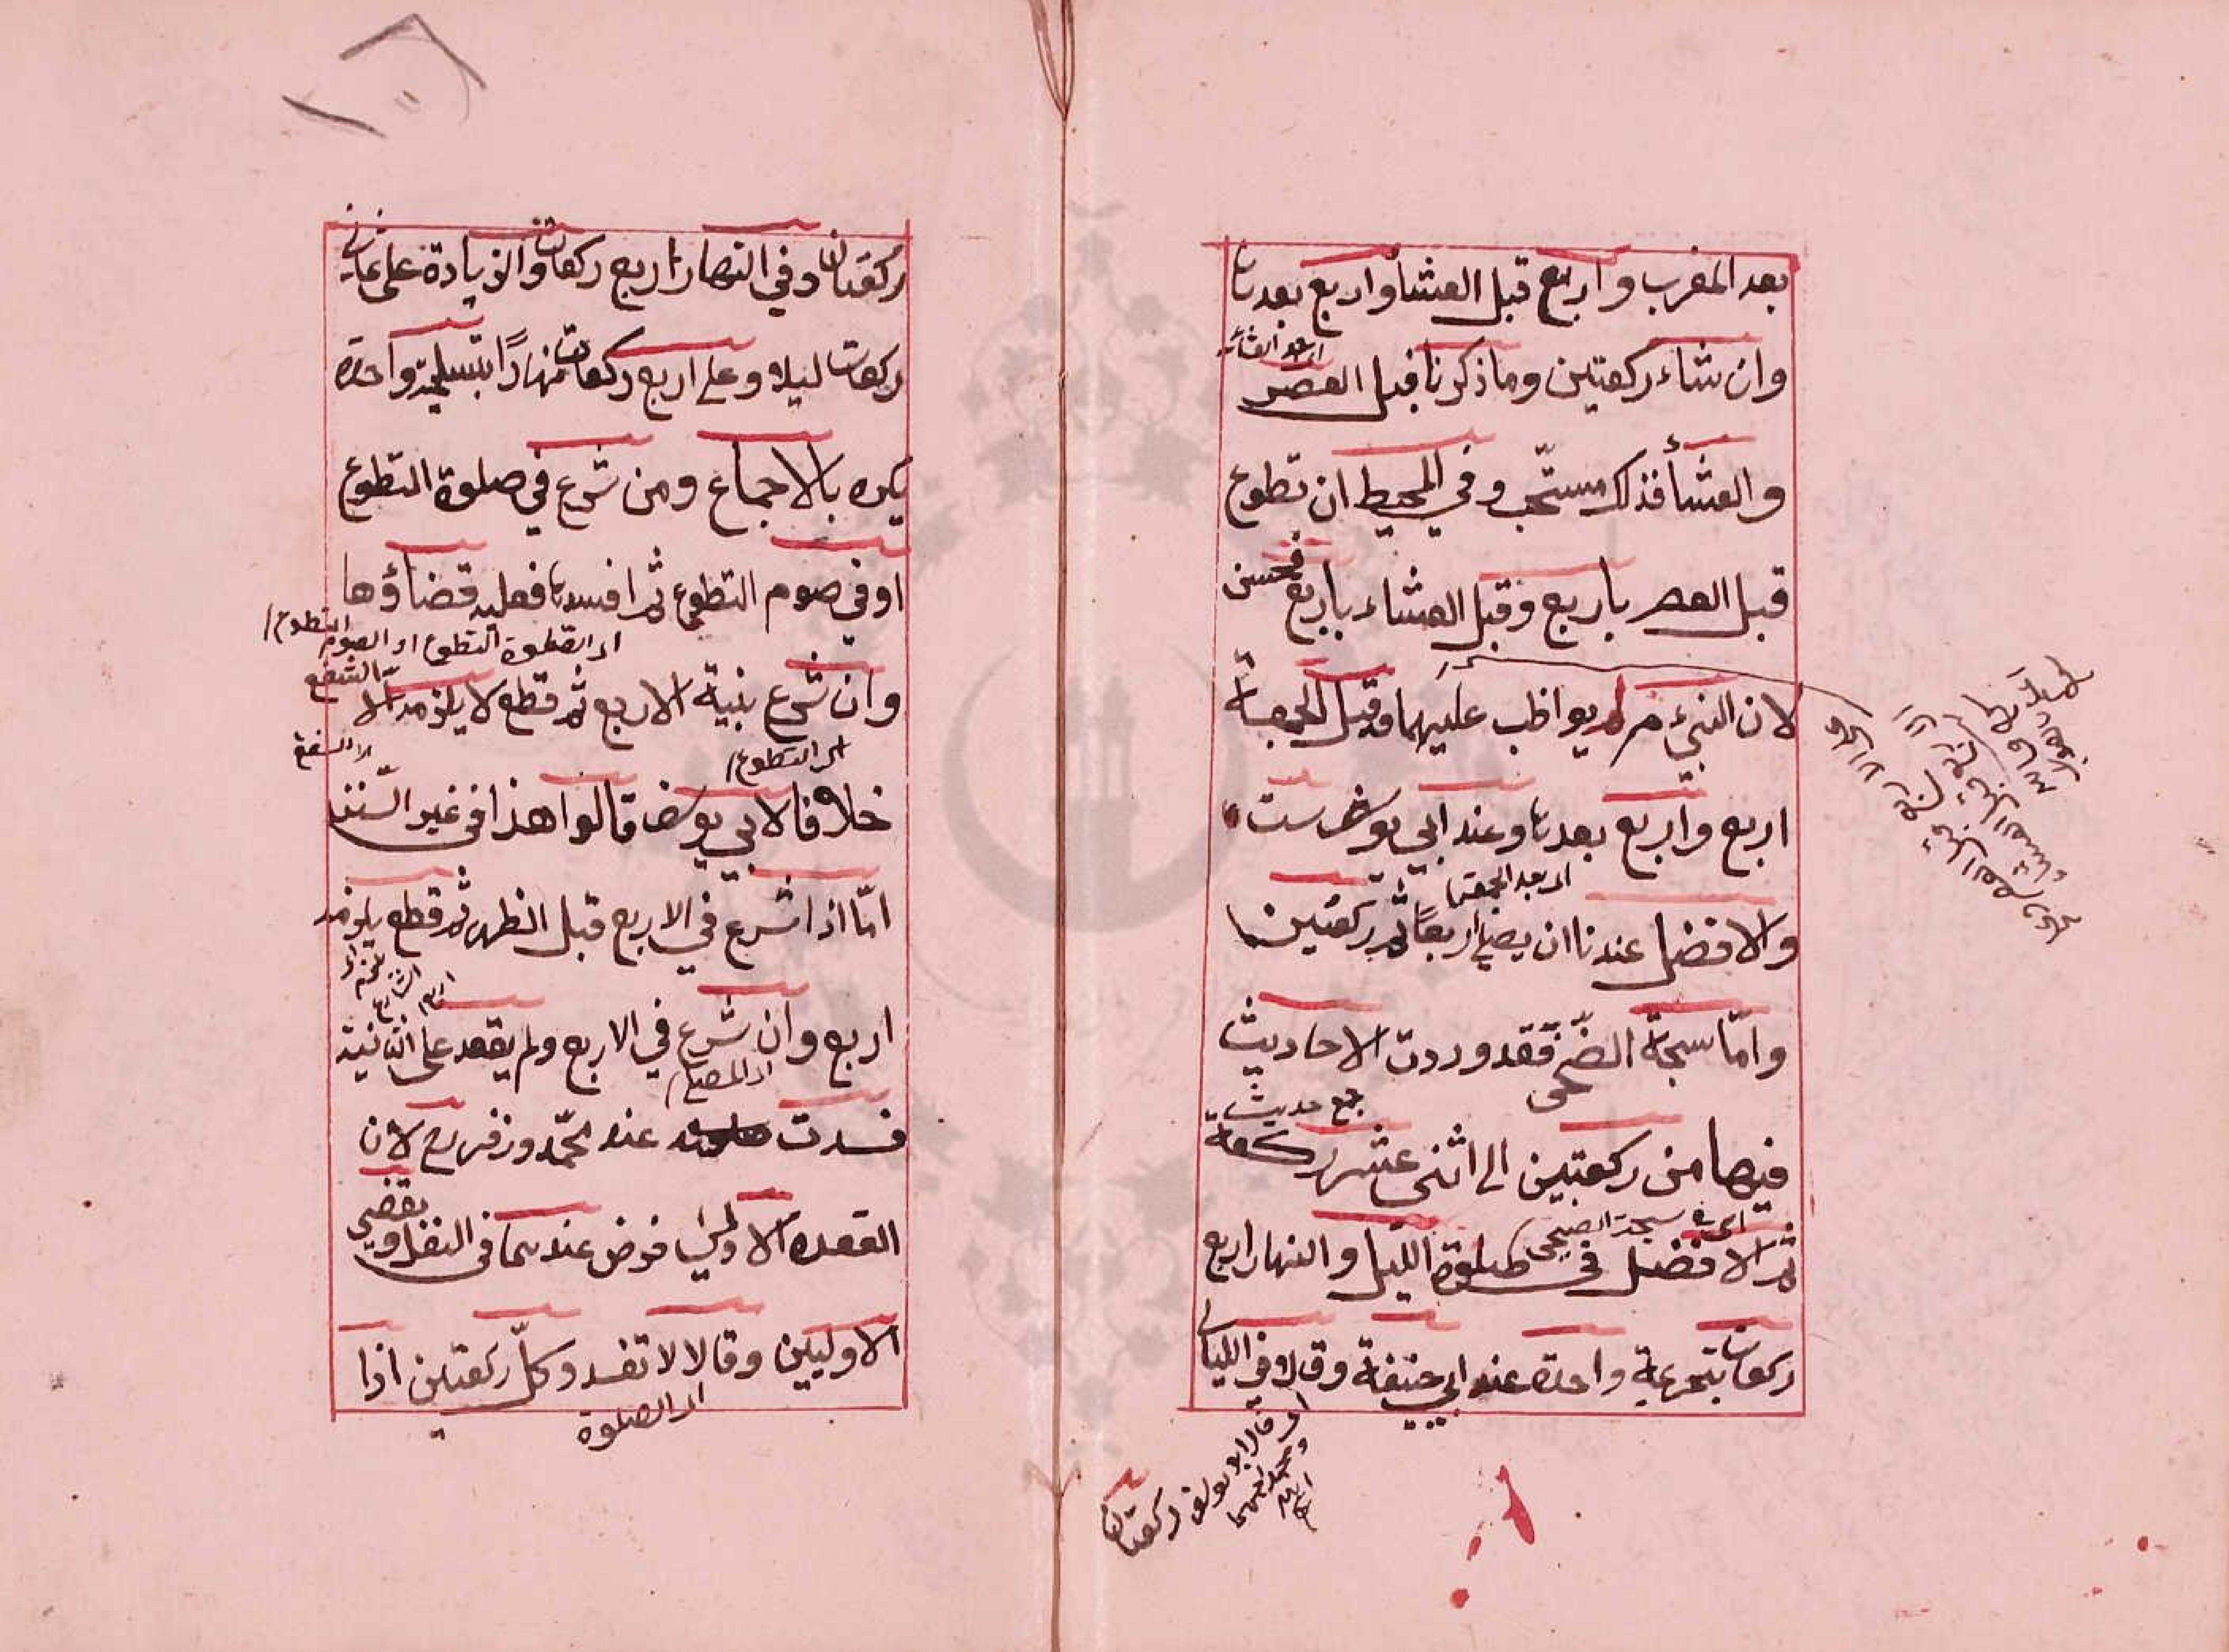 بعد المغرب و اربع قبل العشأ و اربع بعدها
اى بعد العشاء
وان شاء ركعتين وما ذكرنا قبل العصر
والعشأ فذلك مستحّب وفي المحيط ان تطوع
قبل العصر باربع وقبل العشاء باربع فحسن
لان النبيّ م لم يواظب عليهما وقبل الجمعة
اربع واربع بعدها وعند ابي يوسف ست
اى بعد الجمعة
والافضل عندنا ان يصلي اربعاً ثم ركعتين
وامّا سبحة الضّحى فقد وردت الاحاديث
جمع حديث
فيها من ركعتين الى اثنى عشر ركعة
اى فى سبحة الضحى
ثم الافضل فى صلوة الليل والنهار اربع
ركعات بتحريمة واحدة عند ابي حنيفة وقالا في الليالى
اى قالا ابو يوسف
ومحمد
ركعتان
ركعتان وفي النهار اربع ركعات والزيادة على ثمانى
ركعات ليلا وعلى اربع ركعات نهارًا بتسليمة واحدة
يكره بالاجماع ومن شرع في صلوة التطوع
او في صوم التطوع ثم افسدها فعليه قضاؤها
اى الصلوة التطوع او الصوم التطوع
وان شرع بنية الاربع ثم قطع لا يلزمه الّا الشفع
اى التطوع
خلافا لابي يوسف قالوا هذا في غير السّنن
امّا اذا شرع في الاربع قبل الظهر ثم قطع يلزمه
اربع وان شرع في الاربع ولم يقعد على الثانية
اى المصلى
فسدت صلوته عند محمّد وزفر رح لان
القعدة الاولى فرض عندهما في النفل ويقضى
الاوليين وقالا لا تفسد وكلّ ركعتين اذا
اى الصلوة